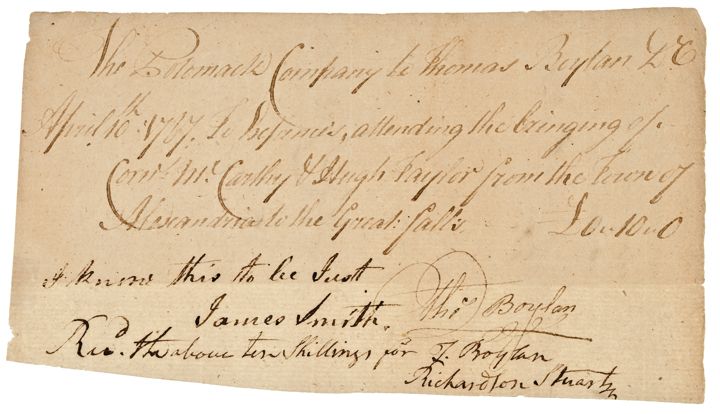 The Potomack Company to Thomas Boylan Dr
April 16th 1787. To Expences, attending the bringing up
Corns. McCarthy & Hugh Taylor from the Town of
Alexandria to the Great falls £0..10..0
I know this to be Just
James Smith. Thos Boylan
Recd. the above ten Shillings for T. Boylan
Richardson Stuart